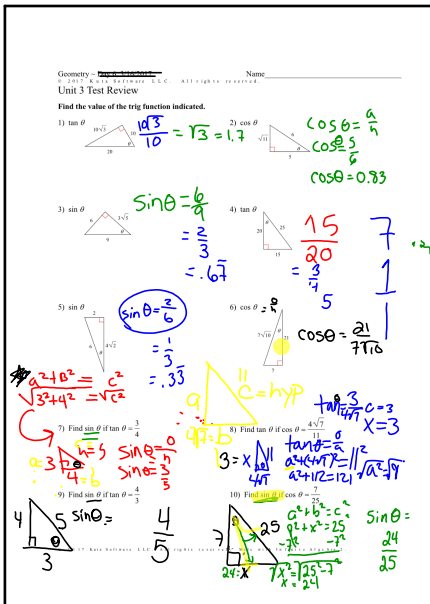 Geometry ~
Name
© 2017 Kuta Software LLC. All rights reserved.
Unit 3 Test Review
Find the value of the trig function indicated.
1) tan θ
10√3
10
20
θ
10√3/10 = √3 = 1.7
2) cos θ
√11
6
5
θ
cosθ = a/h
cosθ = 5/6
cosθ = 0.83
3) sin θ
6
3√5
9
θ
sinθ = 6/9
= 2/3
= .67
4) tan θ
20
25
15
θ
15/20
= 3/4
5
7
1
1
5) sin θ
2
6
4√2
θ
sinθ = 2/6
= 1/3
= .33
6) cos θ
= a/h
7√10
21
7
θ
cosθ = 21/7√10
a² + B² = c²
√3²+4² = √c²
a
c = hyp
= b
7) Find sin θ if tan θ = 3/4
h=5
a = 3
4 = b
θ
sinθ = o/h
sinθ = 3/5
8) Find tan θ if cos θ = 4√7/11
tanθ = 3/4√7
c = 3
x = 3
3 = x
11
4√7
tanθ = o/a
a²+(4√7)² = 11²
a²+112 = 121
√a² = √9
9) Find sin θ if tan θ = 4/3
4
5
3
θ
sinθ =
4/5
10) Find sin θ if cos θ = 7/25
7
25
24 = x
a²+b² = c²
7²+x² = 25
-7² -7²
√x² = √25²-7²
x = 24
sinθ =
24/25